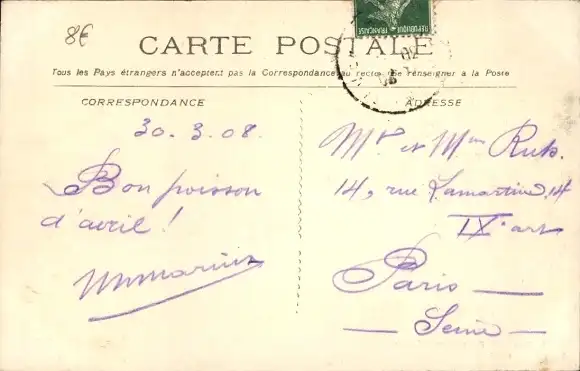 8€
RÉPUBLIQUE FRANÇAISE
CARTE POSTALE
Tous les Pays étrangers n'acceptent pas la Correspondance au recto. (Se renseigner à la Poste
CORRESPONDANCE
30.3.08.
Bon poisson
d'avril !
ADRESSE
Mr et Mme Rub.
14, rue Lamartine, 14
IX. arr
Paris
Seine